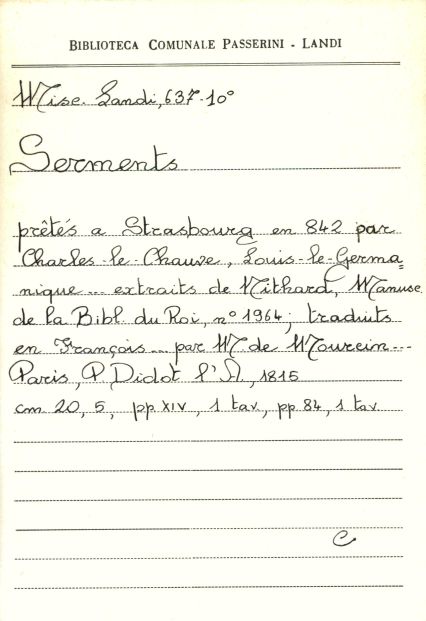 BIBLIOTECA COMUNALE PASSERINI - LANDI
Misc. Landi, 637-10°
Serments
prêtés a Strasbourg en 842 par
Charles-le-Chauve, Louis-le-Germa=
nique... extraits de Nithard, Manusc
de la Bibl. du Roi, n° 1964; traduits
en François... par M. de Mourcin...
Paris, P. Didot l'A., 1815
cm 20, 5, pp XIV, 1 tav, pp 84, 1 tav
C